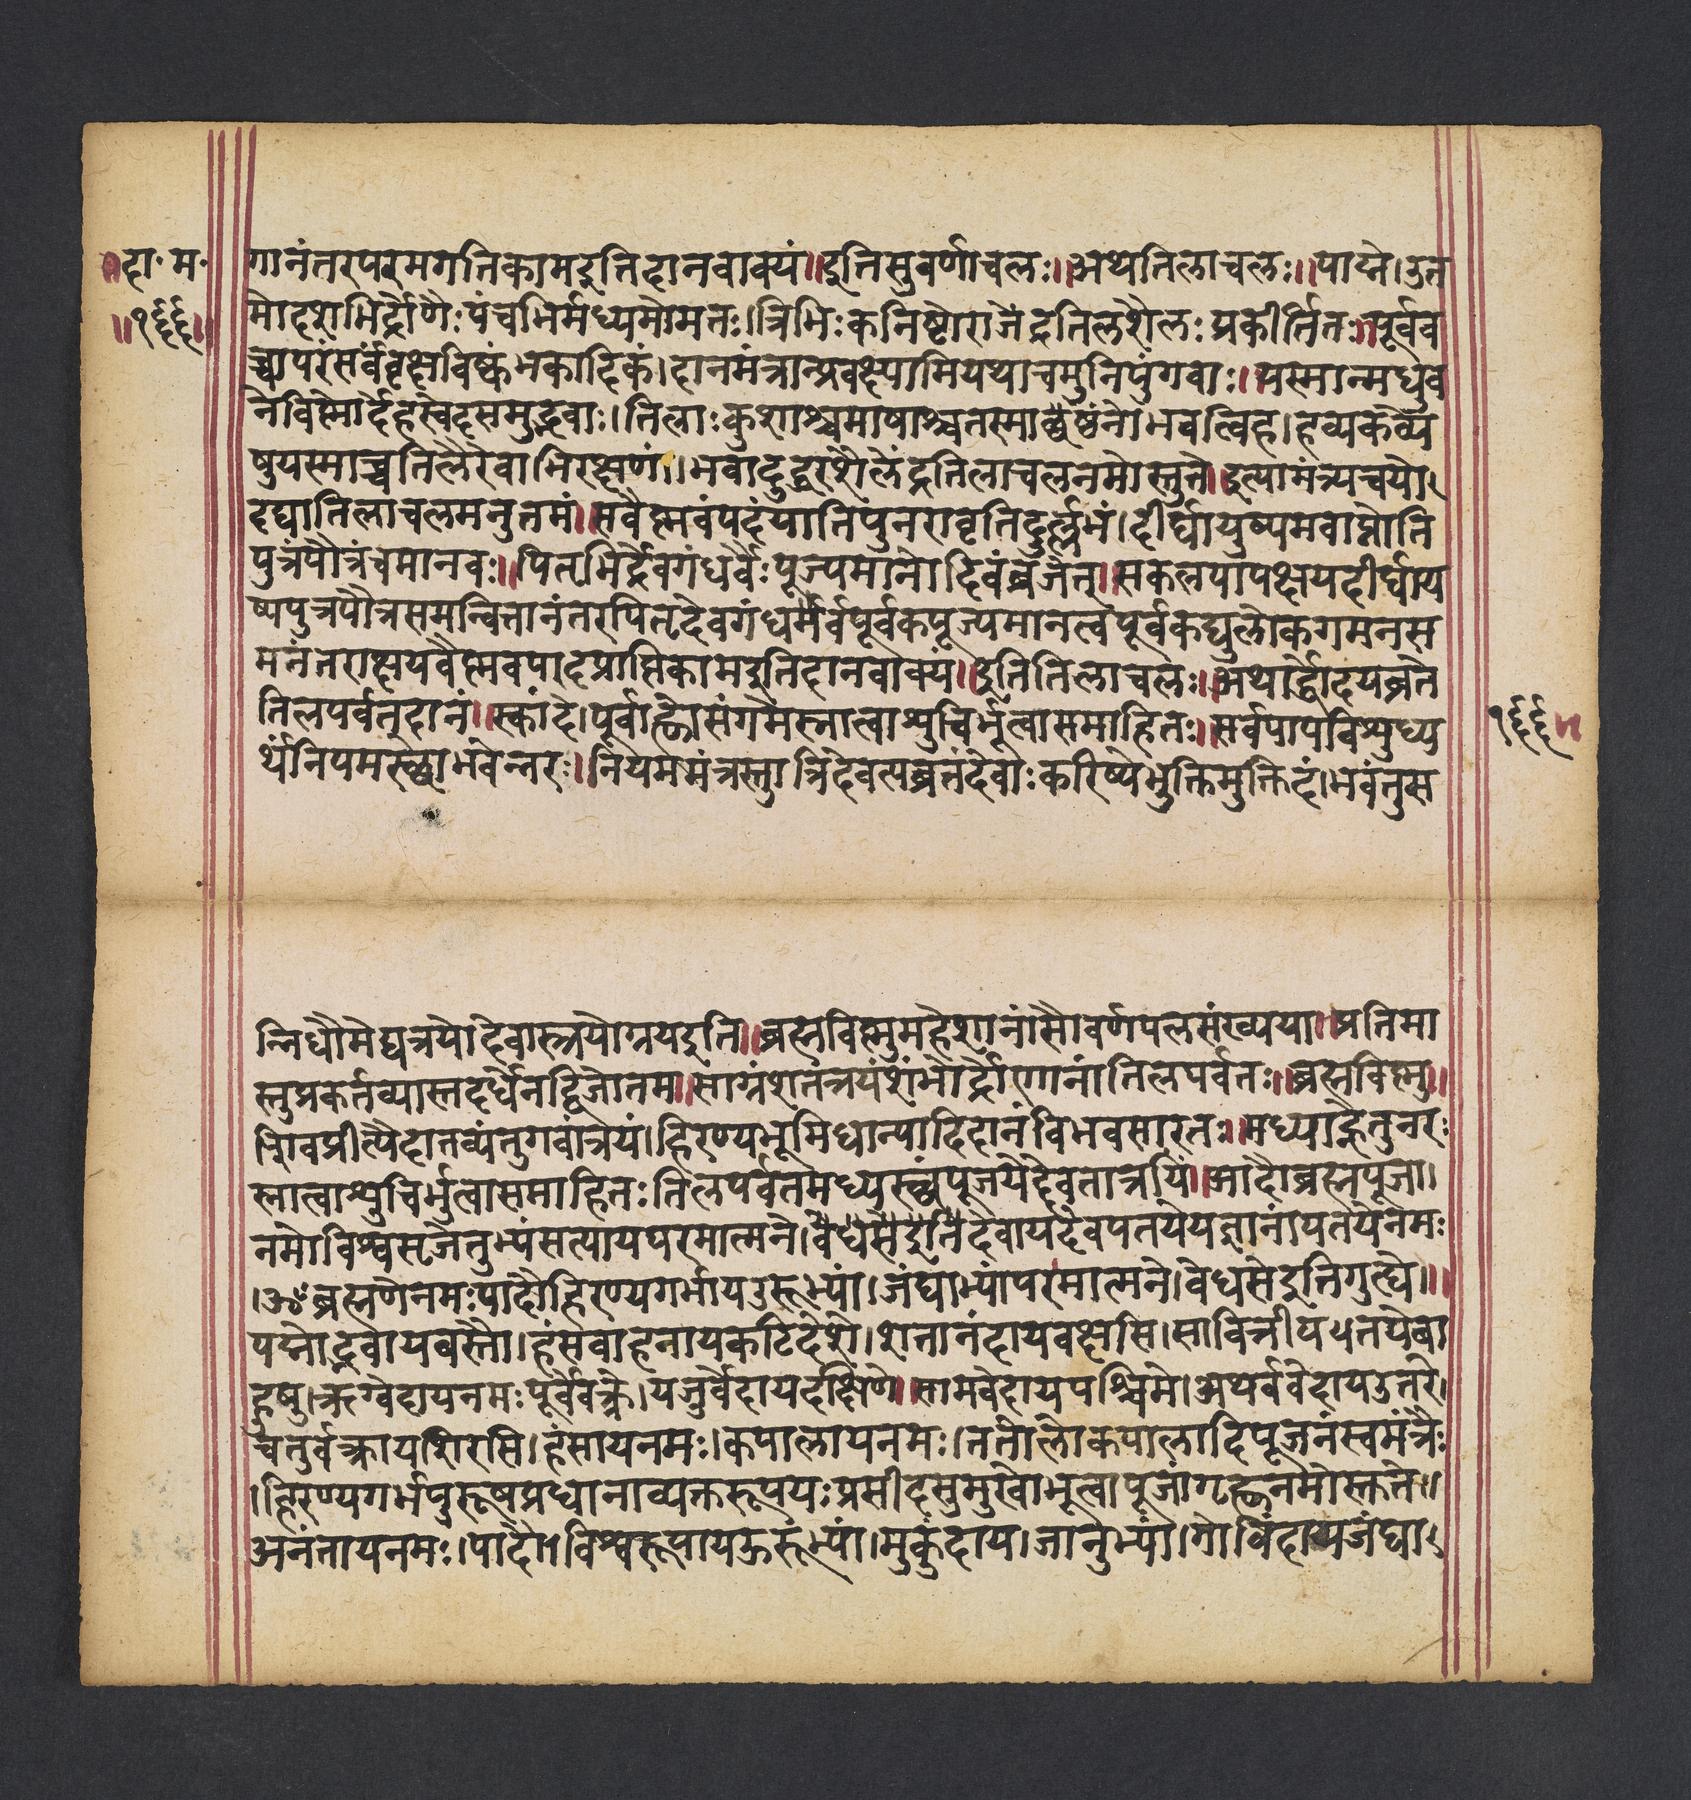 ॥दा॰म॰
॥१६६॥
गानंतरपरमगतिकामइतिदानवाक्यं॥इतिसुवर्णाचलः॥अथतिलाचलः॥पाद्मे।उत्त
मोदशभिर्द्रोणैःपंचभिर्मध्यमोमतः।त्रिभिःकनिष्टोराजेंद्रतिलशैलःप्रकीर्तितः॥पूर्वव
च्चापरंसर्वंवृक्षविष्कंभकादिकं।दानमंत्रान्प्रवक्ष्यामियथाचमुनिपुंगवाः॥यस्मान्मधुव
नेविष्णोर्देहस्वेदसमुद्भवाः।तिलाःकुशाश्चमाषाश्चतस्माच्छंनोभवत्विह।हव्यकव्ये
षुयस्माच्चतिलैरेवाभिरक्षणं।भवादुद्धरशैलेंद्रतिलाचलनमोस्तुते॥इत्यामंत्र्यचयो
दद्यातिलाचलमनुत्तमं॥सवैष्णवंपदंयातिपुनरावृतिदुर्लभं।दीर्घायुष्यमवाप्नोति
पुत्रंपौत्रंचमानवः॥पितृभिर्देवगंधर्वैःपूज्यमानोदिवंव्रजेत्॥सकलपापक्षयदीर्घाय
ष्यपुत्रपौत्रसमन्वितानंतरपितृदेवगंधर्मर्वपूर्वकपूज्यमानत्वपूर्वकद्युलोकगमनस
मनंतराक्षयवैष्णवपदप्राप्तिकामइतिदानवाक्यं॥इतितिलाचलः॥अथार्द्धोदयव्रते
तिलपर्वतदानं॥स्कांदे।पूर्वाह्णेसंगमेस्नात्वाश्युचिर्भूत्वासमाहितः॥सर्वपापविश्युध्य
र्थंनियमस्छोभवेन्नरः॥नियममंत्रस्तुत्रिदेवत्यव्रतंदेवाःकरिष्येभुक्तिमुक्तिदं।भवंतुस
१६६॥
न्निधौमेद्यत्रयोदेवास्त्रयोग्नयइति॥ब्रह्मविष्णुमहेशानांसौवर्णपलसंख्यया॥प्रतिमा
स्तुप्रकर्तव्यास्तदर्धेनद्विजोतम॥साग्रंशतंत्रयंशंभोर्द्रोणानांतिलपर्वतः॥ब्रह्मविष्णु॥
शिवप्रीत्यैदातव्यंतुगवांत्रयं।हिरण्यभूमिधान्यादिदानंविभवसारतः॥मध्याह्नेतुनरः
स्नात्वाश्युचिर्भुत्वासमाहितः तिलपर्वतमध्यस्छंपूजयेद्देवतात्रयिं॥आदौब्रह्मपूजा।
नमोविश्वसृजेतुभ्यंसत्यायपरमात्मने।वेधसेइतिदेवायदेवपतयेयज्ञानांपतयेनमः
।ॐब्रह्मणेनमःपादौहिरण्यगर्भायउरूभ्यां।जंघाभ्यांपरमात्मने।वेधसेइतिगुह्ये॥
पद्मोद्भवायबस्तौ।हंसवाहनायकटिदेशे।शतानंदायवक्षसि।सावित्रीपथतयेबा
हुषु।ऋग्वेदायनमःपूर्वेवक्त्रे।यजुर्वेदायदक्षिणे॥सामवेदायपश्चिमे।अथर्ववेदायउत्तरे।
चतुर्वक्त्रायशिरसि।हंसायनमः।कपालायनमः।ततोलोकपालादिपूजनंस्वमंत्रैः
।हिरण्यगर्भपुरूषप्रधानाव्यक्तरूपयःप्रसीदसुमुखोभूत्वापूजांगृह्णनमोस्तते॥
अनंतायनमः।पादौ।विश्वरूपायऊरूभ्यां।मुकुंदाय।जानुभ्यां।गोविंदायजंघा